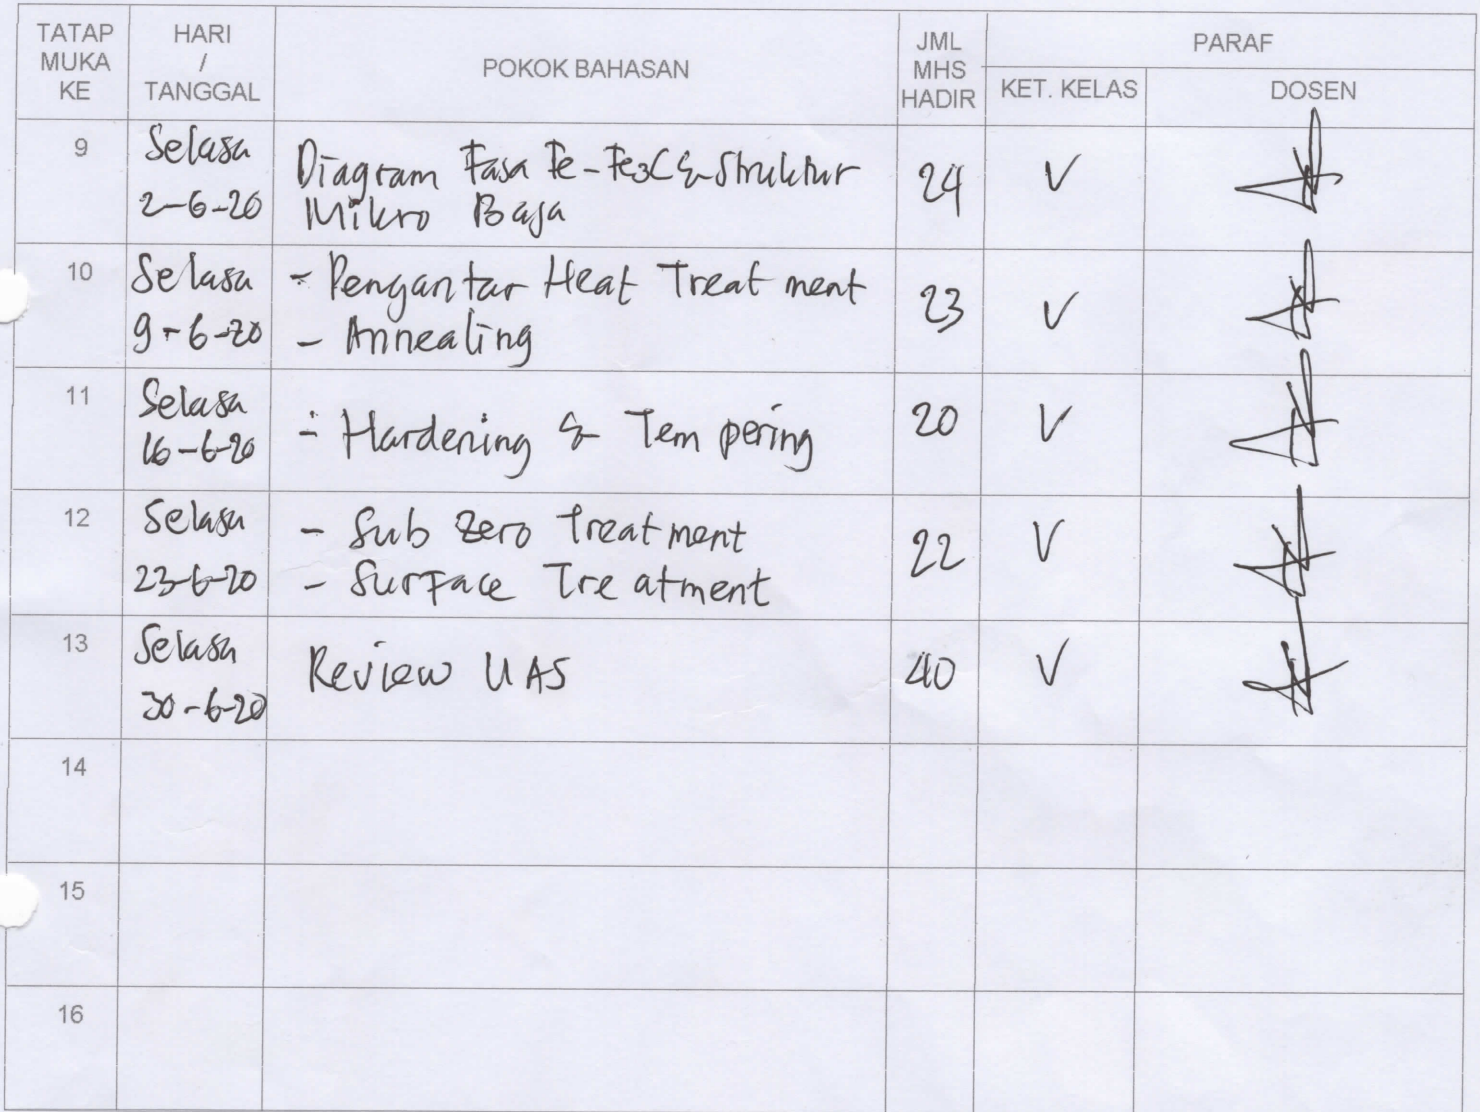 TATAP MUKA KE HARI / TANGGAL POKOK BAHASAN JML MHS HADIR PARAF
KET. KELAS DOSEN
9 Selasa 2-6-20 Diagram Fasa Fe-Fe3C & Struktur 24 V
Mikro Baja
10 Selasa 9-6-20 - Pengantar Heat Treatment 23 V
- Annealing
11 Selasa 16-6-20 - Hardening & Tempering 20 V
12 Selasa 23-6-20 - Sub Zero Treatment 22 V
- Surface Treatment
13 Selasa 30-6-20 Review UAS 40 V
14
15
16